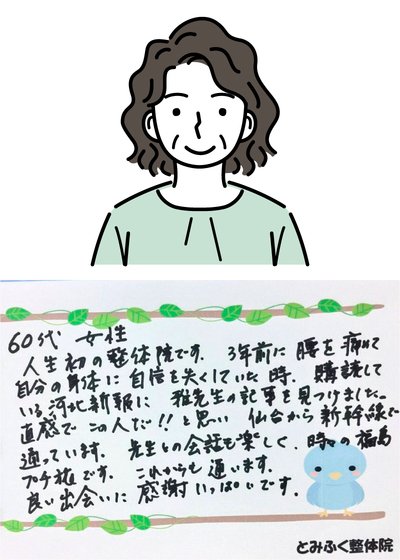 60代 女性
人生初の整体院です。 3年前に腰を痛めて
自分の身体に自信を失くしていた時、購読して
いる河北新報に 雅先生の記事を見つけました。
直感でこの人だ!!と思い 仙台から新幹線で
通っています。 先生との会話も楽しく、時々の福島
プチ旅です。 これからも通います。
良い出会いに感謝いっぱいです。
とみふく整体院